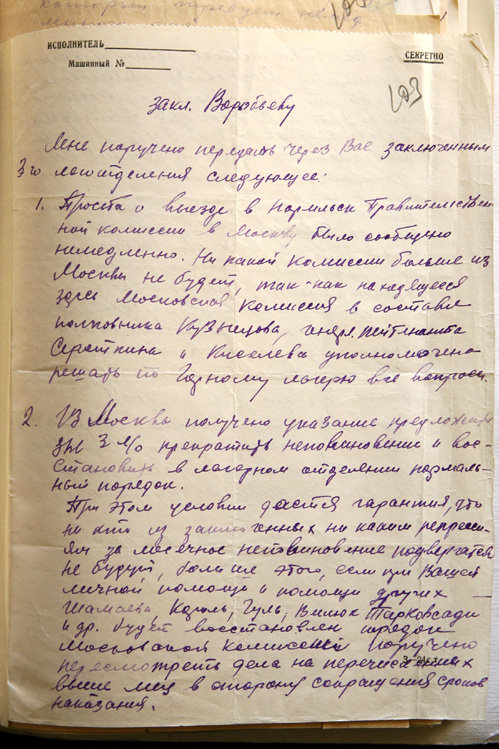 103
ИСПОЛНИТЕЛЬ
СЕКРЕТНО
Машинный №
103
закл. Воробьеву
Мне поручено передать через Вас заключенным
3го лаготделения следующее:
1. Просьба о выезде в Норильск Правительствен-
ной комиссии в Москву было сообщено
немедленно. Ни какой комиссии больше из
Москвы не будет, так-как находящееся
здесь Московская Комиссия в составе
полковника Кузнецова, генерал лейтенанта
Сироткина и Киселева уполномочена
решать по Горному лагерю все вопросы.
2. Из Москвы получено указание предложить
з/к 3 л/о прекратить неповиновение и вос-
становить в лагерном отделении нормаль-
ный порядок.
При этом условии дается гарантия, что
ни кто из заключенных ни каким репресси-
ям за месячное неповиновение подвергаться
не будут, больше этого, если при Вашей
личной помощи и помощи других
Шамаева, Король, Гуль, Вилюк Тарковсади
и др. будет восстановлен порядок
Московской комиссией поручено
пересмотреть дела на перечисленных
выше лиц в сторону сокращения сроков
наказания.